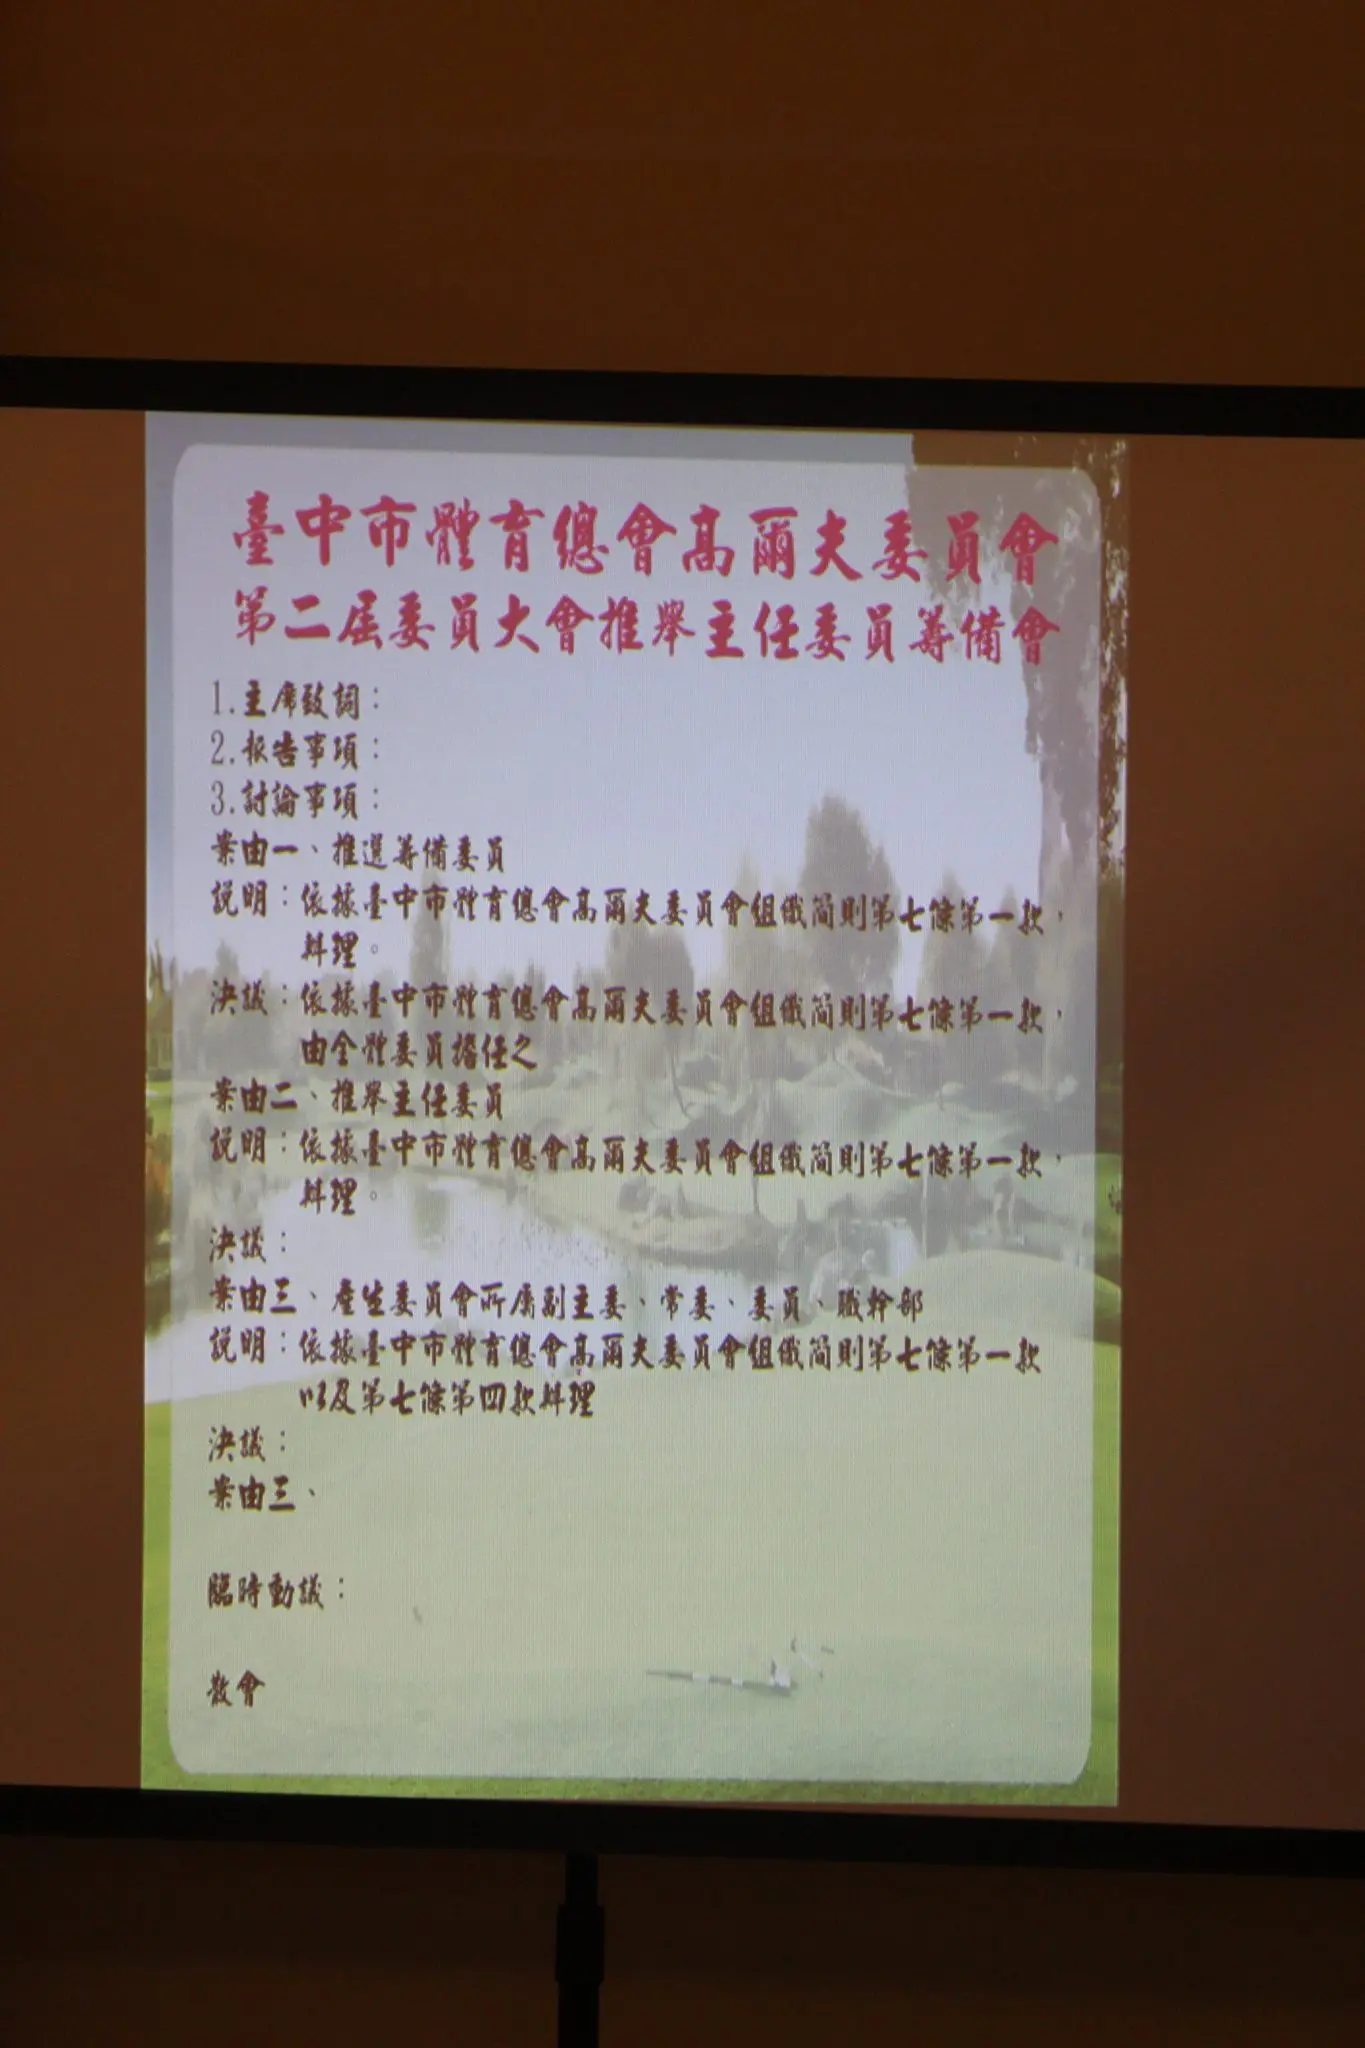 臺中市體育總會高爾夫委員會
第二屆委員大會推舉主任委員籌備會
1.主席致詞：
2.報告事項：
3.討論事項：
案由一、推選籌備委員
說明：依據臺中市體育總會高爾夫委員會組織簡則第七條第一款，
辦理。
決議：依據臺中市體育總會高爾夫委員會組織簡則第七條第一款，
由全體委員擔任之
案由二、推舉主任委員
說明：依據臺中市體育總會高爾夫委員會組織簡則第七條第一款，
辦理。
決議：
案由三、產生委員會所屬副主委、常委、委員、職幹部
說明：依據臺中市體育總會高爾夫委員會組織簡則第七條第一款
以及第七條第四款辦理
決議：
案由三、
臨時動議：
散會